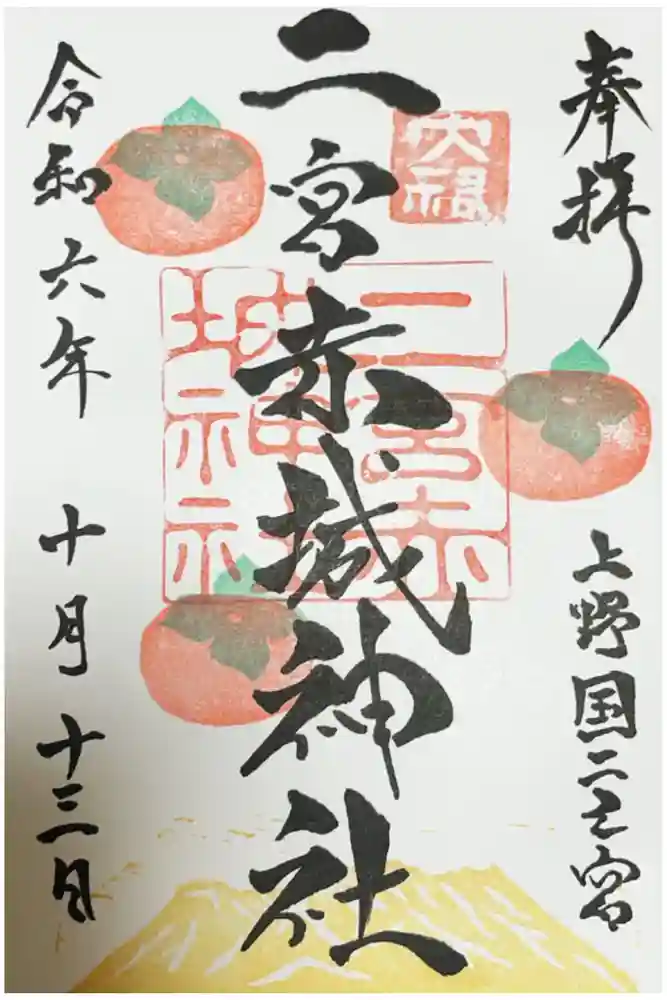 奉拝
上野国二之宮
大福
二宮赤城神社
二宮赤
城神社
令和六年 十月 十三日